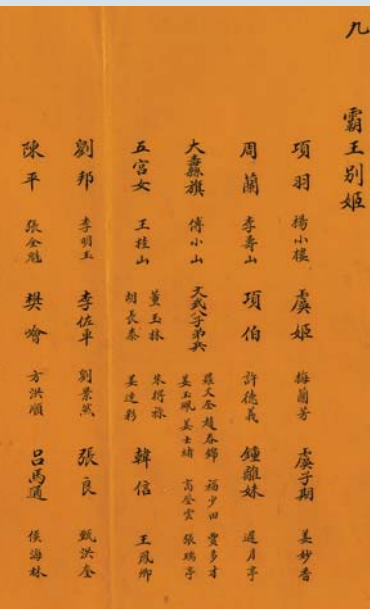 九
霸王別姬
項羽 楊小樓 虞姬 梅蘭芳 虞子期 姜妙香
周蘭 李壽山 項伯 許德義 鍾離昧 遲月亭
大纛旗 傅小山 文武八子弟兵 羅文奎 趙春錦 福少田 賈多才 姜玉珮 姜士緒 高登雲 張瑞亭
五宮女 王桂山 董玉林 朱 祿 胡長泰 姜連彩 韓信 王鳳卿
劉邦 李明玉 李佐車 劉景然 張良 甄洪奎
陳平 張全魁 樊噲 方洪順 呂馬通 侯海林